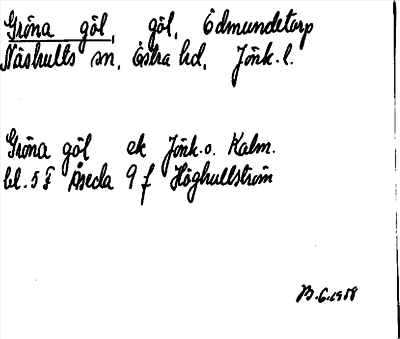 Gröna göl, göl, Edmundetorp
Näshults sn, Östra hd, Jönk.l.
Gröna göl ek Jönk.o. Kalm.
bl. 5 F Åseda 9 f Höghultström
B.G.1958